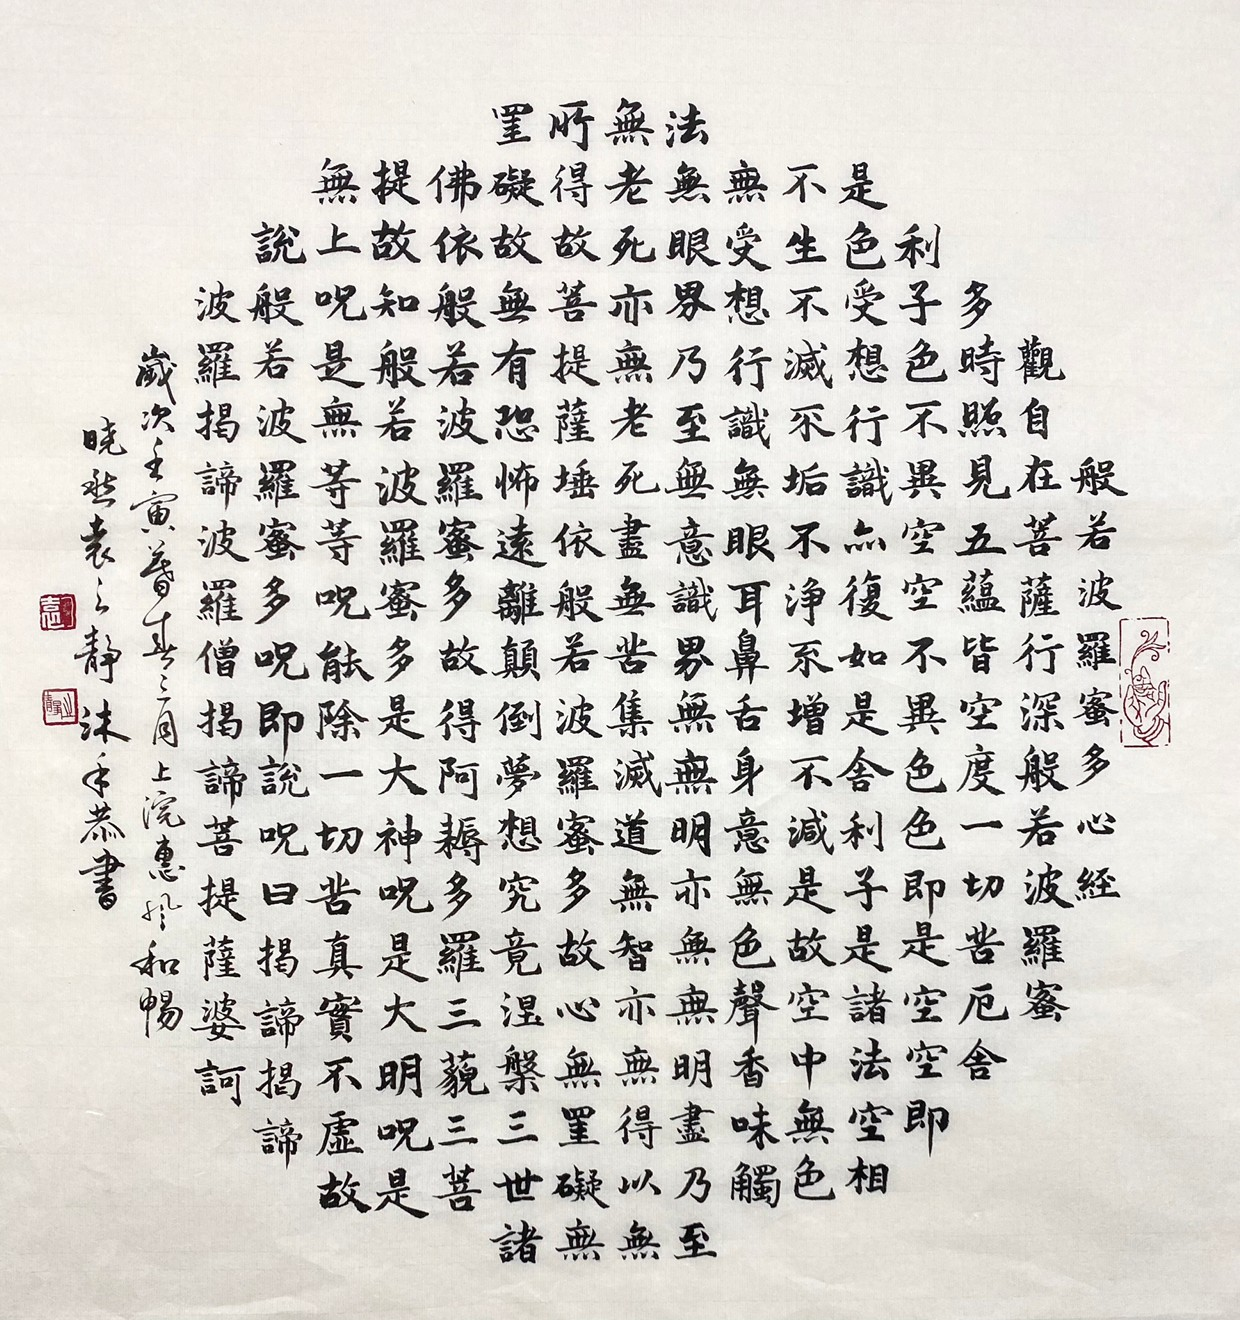 般若波羅蜜多心経
觀自在菩薩行深般若波羅蜜
多時照見五蘊皆空度一切苦厄舍
利子色不異空空不異色色即是空空即
是色受想行識亦復如是舍利子是諸法空相
不生不滅不垢不浄不增不減是故空中無色
無受想行識無眼耳鼻舌身意無色聲香味觸
法無眼界乃至無意識界無無明亦無無明盡乃至
無老死亦無老死盡無苦集滅道無智亦無得以無
所得故菩提薩埵依般若波羅蜜多故心無罣礙無
罣礙故無有恐怖遠離顛倒夢想究竟涅槃三世諸
佛依般若波羅蜜多故得阿耨多羅三藐三菩
提故知般若波羅蜜多是大神呪是大明呪是
無上呪是無等等呪能除一切苦真實不虛故
說般若波羅蜜多呪即說呪曰揭諦揭諦
波羅揭諦波羅僧揭諦菩提薩婆訶
歲次壬寅暮春三月上浣惠風和暢
曉然袁之靜沐手恭書